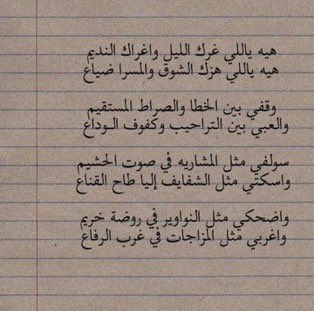 هيه ياللي غرك الليل واغراك النديم
هيه ياللي هزك الشوق والمسرا ضياع
وقفي بين الخطا والصراط المستقيم
والعبي بين التراحيب وكفوف الـوداع
سولفي مثل المشاريه في صوت الحشيم
واسكتي مثل الشفايف إليا طاح القناع
واضحكي مثل النواوير في روضة خريم
واغربي مثل المزاجات في غرب الرفاع